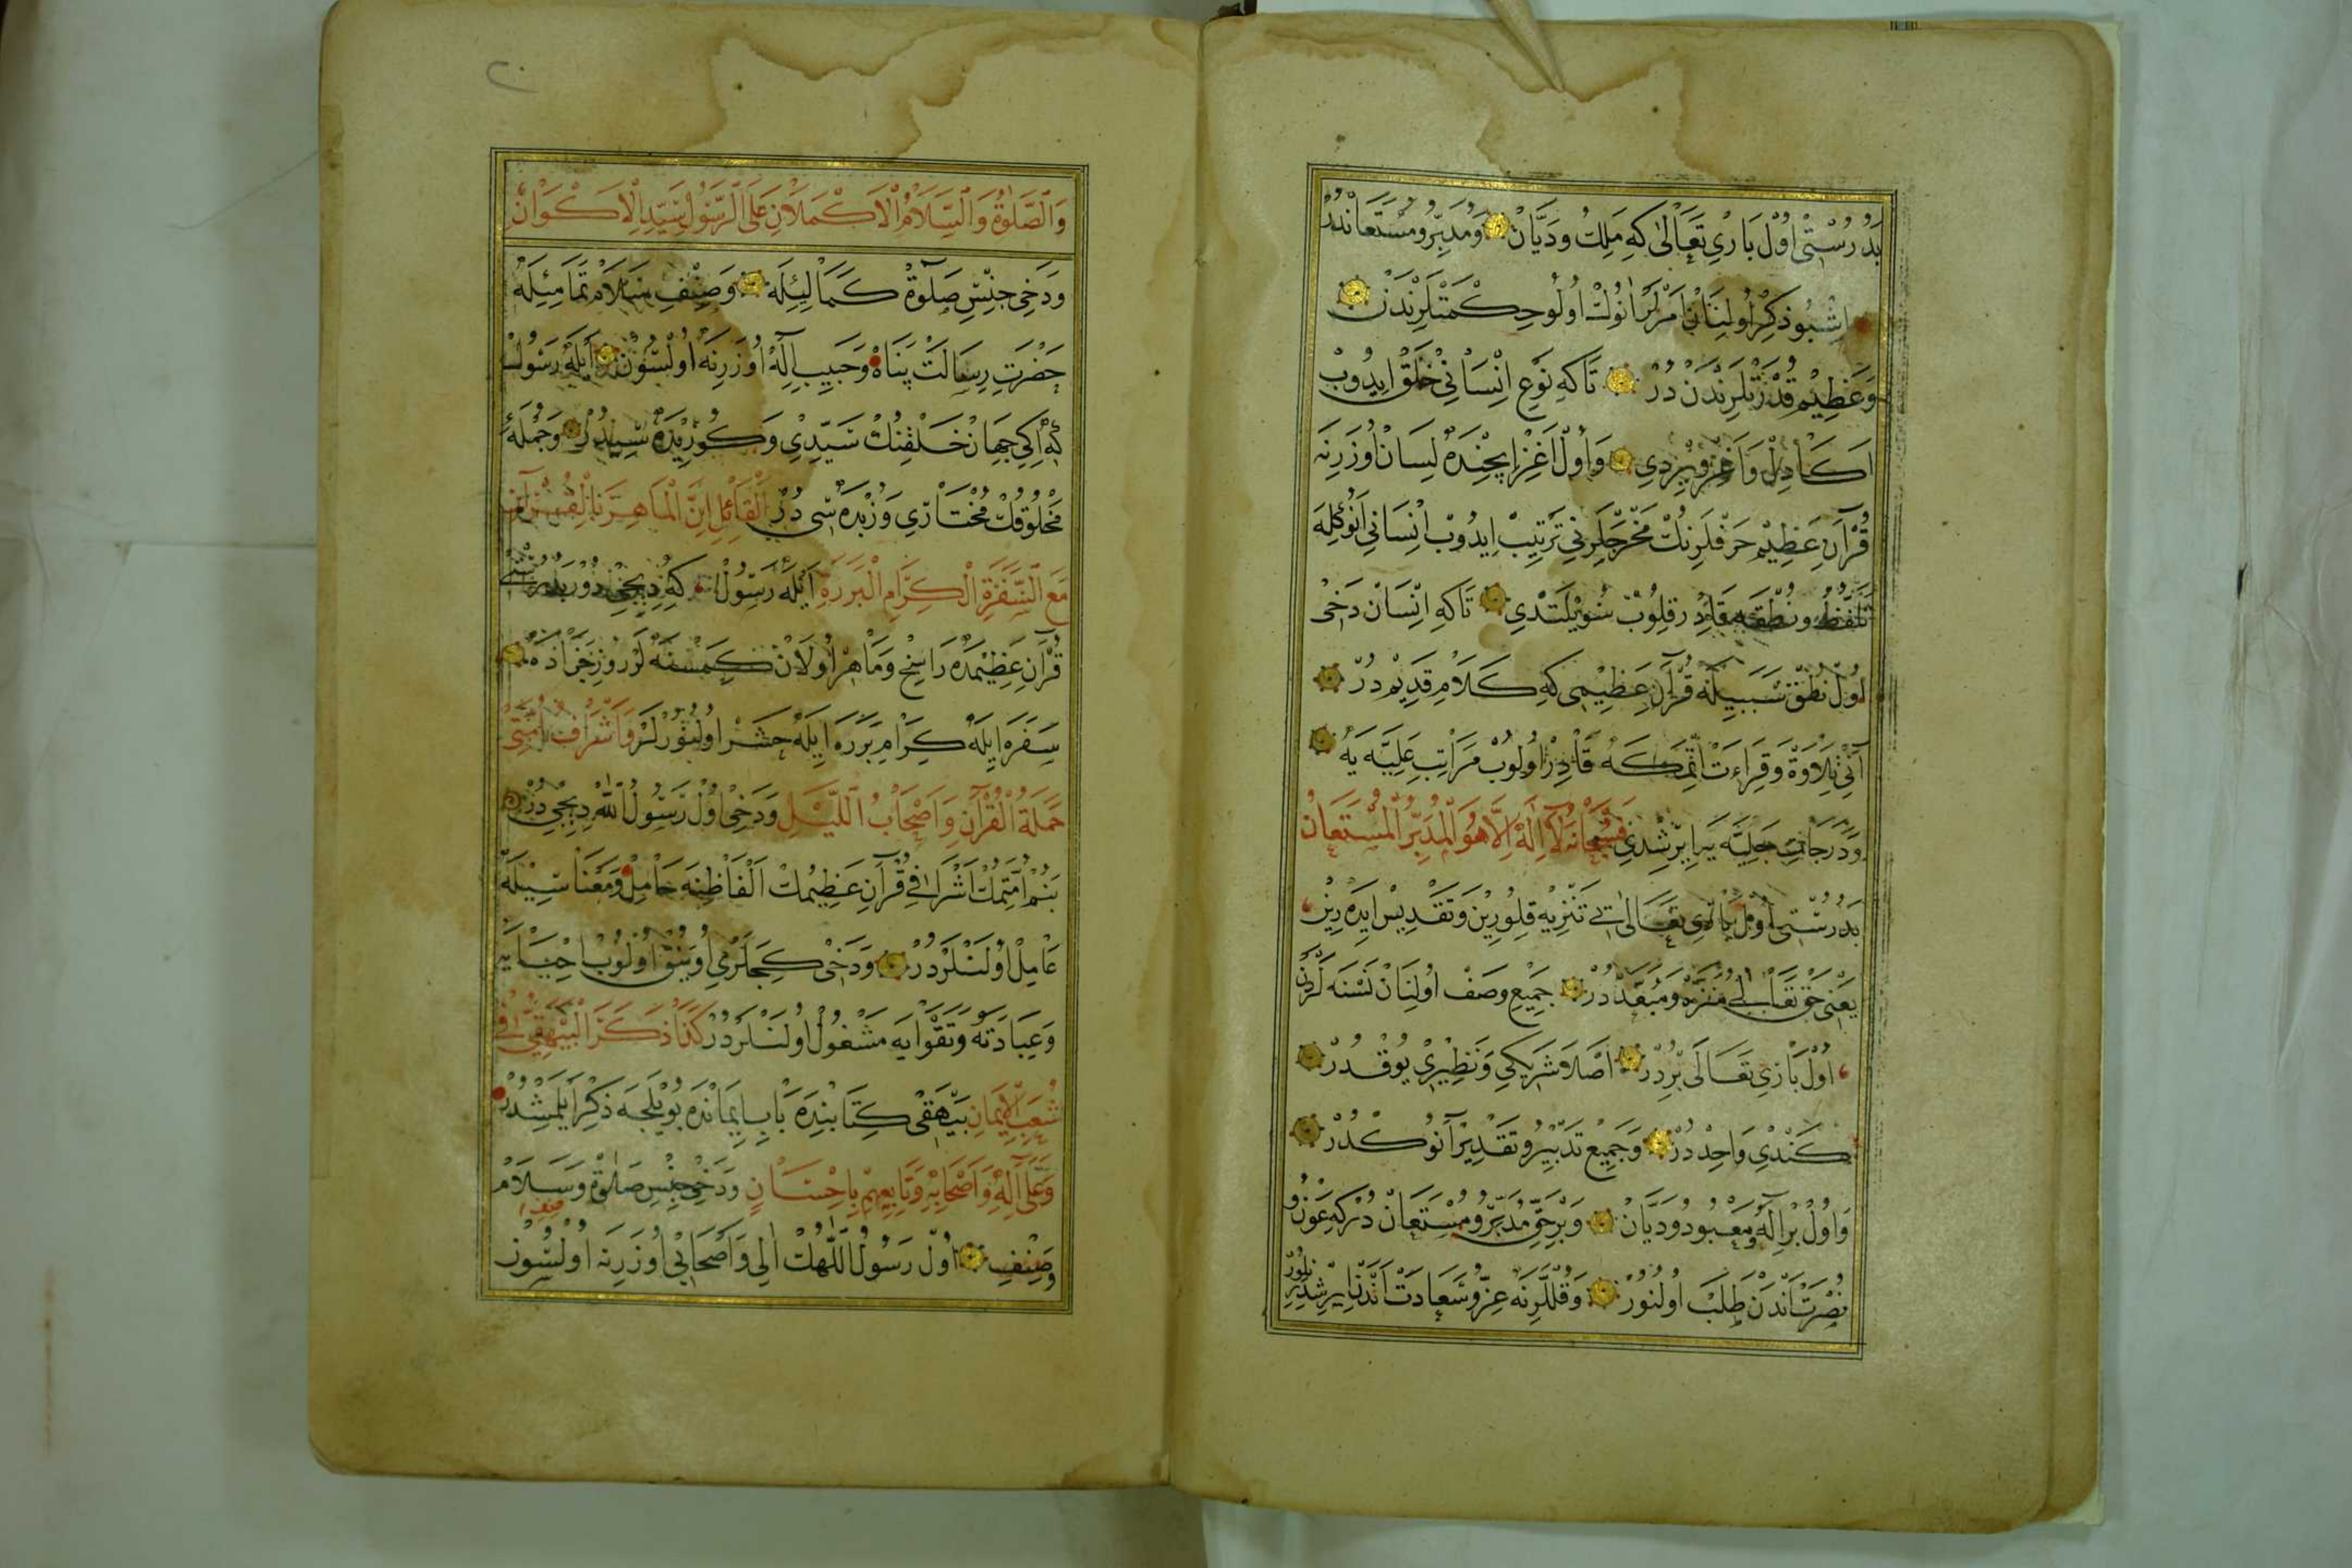 بَدُرُسْتِى اُوْلْ بَارِى تَعَالٰى كِه مَلِكْ وَدَيَّانْ وَمُدَبِّرُ وَمُسْتَعَانْدُرْ
اِشْبُو ذِكْرْ اُولِنَانْ اَمْرْلَرْ اَنُوكْ اُولُو حِكْمَتْلَرِنْدَنْ
وَعَظِيمْ قُدْرَتْلَرِنْدَنْ دُرْ تَاكِه نَوْعِ اِنْسَانِى خَلْقْ اِيدُوبْ
اَكَا دِلْ وَاَغِزْ وِيرْدِى وَاُولْ اَغِزْ اِيچِنْدَه لِسَانْ اُوزَرِنَه
قُرْآنِ عَظِيمْ حَرْفْلَرِنُكْ مَخْرَجْلَرِنِى تَرْتِيبْ اِيدُوبْ اِنْسَانِى اَنُوكِلَه
تَلَفُّظُ وَنُطْقَه قَادِرْ قِلُوبْ سُويْلَتْدِى تَاكِه اِنْسَانْ دَخِى
اُولْ نُطْقْ سَبَبِيلَه قُرْآنِ عَظِيمِى كِه كَلَامِ قَدِيمْ دُرْ
آنِى تِلَاوَةْ وَقِرَاءَتْ اِتْمَكَه قَادِرْ اُولُوبْ مَرَاتِبِ عَلِيَّه يَه
وَدَرَجَاتِ جَلِيَّه يَه اِيرِشْدِى فَسُبْحَانَهُ لَآ اِلٰهَ اِلَّا هُوَ الْمُدَبِّرُ الْمُسْتَعَانُ
بَدُرُسْتِى اُولْ بَارِى تَعَالٰى تَنْزِيه قِلُورِينْ وَتَقْدِيسْ اِيدَرِينْ
يَعْنِى حَقْ تَعَالٰى مُنَزَّهْ دُرْ جَمِيعِ وَصْفْ اُولِنَانْ نَسْنَه لَرْدَنْ
اُولْ بَارِى تَعَالٰى بِرْدُرْ اَصْلَا شَرِيكِى وَنَظِيرِى يُوقْدُرْ
كَنْدِى وَاحِدْدُرْ وَجَمِيعْ تَدْبِيرُ وَتَقْدِيرْ آنُوكْدُرْ
وَاُولْ بِرْ اِلٰهُ وَمَعْبُودُ وَدَيَّانْ وَبِرْ حَىِّ مُدَبِّرُ وَمُسْتَعَانْ دُرْكِه عَوْنُ
نُصْرَتْ آنْدَنْ طَلَبْ اُولُنُورْ وَقُللَرِنَه عِزُّ وَسَعَادَتْ آنْدَنْ اِيرِشِدِيرِيلُورْ
وَالصَّلٰوةُ وَالسَّلَامُ الْاَكْمَلَانِ عَلَى الرَّسُولِ سَيِّدِ الْاَكْوَانِ
وَدَخِى جِنْسِ صَلٰوةْ كَمَالِيلَه وَصِنْفِ سَلَامْ تَمَامِيلَه
حَضْرَتِ رِسَالَتْ پَنَاهْ وَحَبِيبِ اِلٰهْ اُوزَرِنَه اُولْسُونْ اَيْلَه رَسُولْ
كِه اِكِى جِهَانْ خَلْقِنُكْ سَيِّدِى وَكُوزِيدَه سِيدُرْ وَجُمْلَه
مَخْلُوقُكْ مُخْتَارِى وَزُبْدَه سِى دُرْ اَلْقَائِلِ اِنَّ الْمَاهِرَ بِالْقُرْآنِ
مَعَ السَّفَرَةِ الْكِرَامِ الْبَرَرَةِ اَيْلَه رَسُولْ كِه دِيجِى دُرْ بَدُرُسْتِى
قُرْآنِ عَظِيمْدَه رَاسِخْ وَمَاهِرْ اُولَانْ كِمْسَنَه لَرْ رُوزِ جَزَادَه
سَفَرَه اِيلَه كِرَامِ بَرَرَه اِيلَه حَشْرْ اُولُنُورْلَرْ وَاَشْرَافُ اُمَّتِى
حَمَلَةُ الْقُرْآنِ وَاَصْحَابُ اللَّيْلِ وَدَخِى اُولْ رَسُولُ اللّٰه دِيجِى دُرْ
بَنُمْ اُمَّتِمُكْ اَشْرَافِى قُرْآنِ عَظِيمُكْ اَلْفَاظِنَه حَامِلْ وَمَعْنَاسِيلَه
عَامِلْ اُولَنْلَرْدُرْ وَدَخِى كِيجَلَرْدِه اُويَنُقْ اُولُوبْ اِحْيَايَه
وَعِبَادَتَه وَتَقْوَايَه مَشْغُولْ اُولَنْلَرْدُرْ كَذَا ذَكَرَ الْبَيْهَقِىُّ فِى
شُعَبِ الْاِيمَانِ بَيْهَقِى كِتَابِنْدَه بَابِ اِيمَانْدَه بُويْلَجَه ذِكْرْ اَيْلَمِشْدُرْ
وَعَلٰى آلِهِ وَاَصْحَابِهِ وَتَابِعِيهِمْ بِاِحْسَانٍ وَدَخِى جِنْسِ صَلٰوةْ وَسَلَامْ
وَصِنْفِ اُولْ رَسُولُ اللّٰهُكْ آلِى وَاَصْحَابِى اُوزَرِنَه اُولْسُونْ